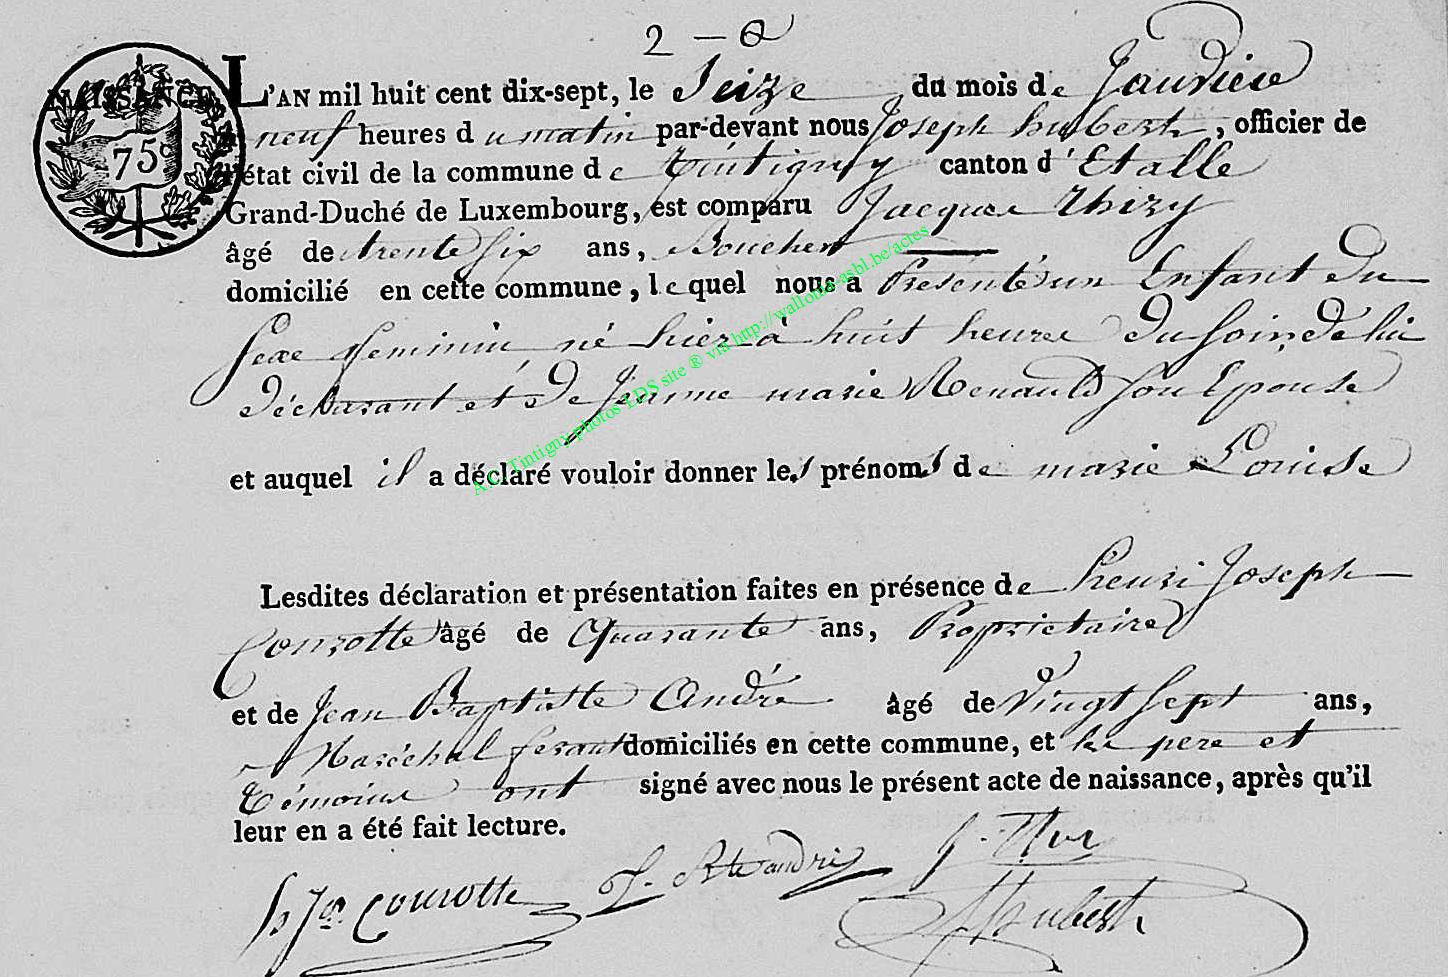 2 - 8
NAISSANCE
75c
L'AN mil huit cent dix-sept, le Seize du mois de Janvier
à neuf heures du matin par-devant nous Joseph hubert, officier de
l'état civil de la commune de tintigny canton d'Etalle
Grand-Duché de Luxembourg, est comparu Jacques thiry
âgé de trente Six ans, Boucher
domicilié en cette commune, lequel nous a Presenté un Enfant du
Sexe feminin né hier à huit heures du Soir, de lui
déclarant et de Jeanne marie Renauld Son Epouse
et auquel il a déclaré vouloir donner les prénoms de marie Louise
Lesdites déclaration et présentation faites en présence de henri Joseph
Courotte âgé de Quarante ans, Proprietaire
et de Jean Baptiste André âgé de Vingt Sept ans,
Maréchal ferant domiciliés en cette commune, et le pere et
témoins ont signé avec nous le présent acte de naissance, après qu'il
leur en a été fait lecture.
h Jh Courotte
J. Bte andré
J. Hubert
A.C. Tintigny photos LDS site ® via http://wallonia-asbl.be/actes